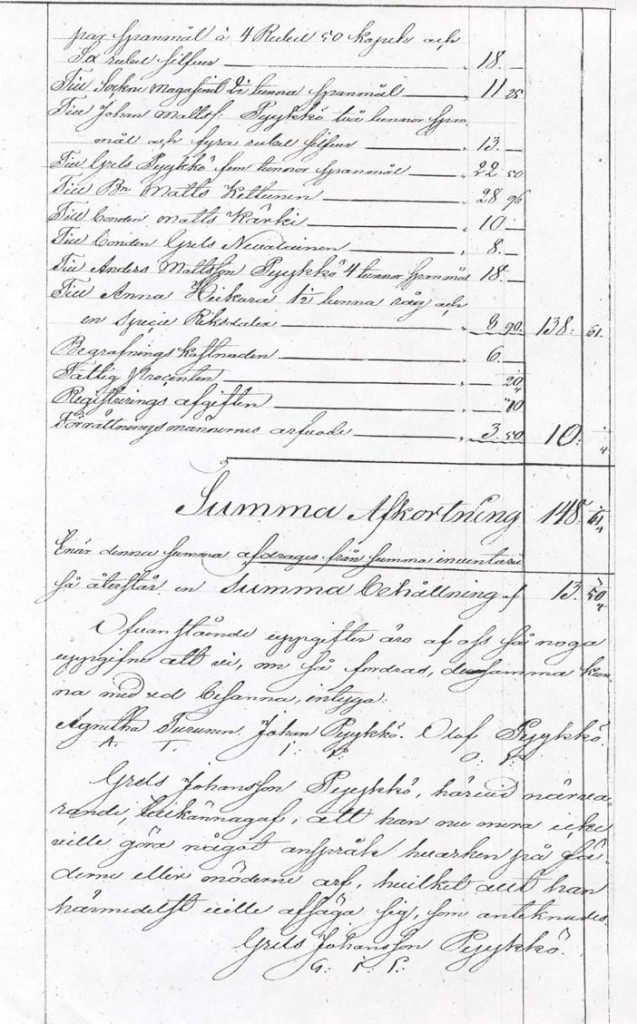 par Spanmål à 4 Rubel 50 kopek och
Sex rubel silfver " 18. —
Till Sockne Magasinet 2½ tunna Spanmål " 11 25
Till Johan Mattsf: Pyykkö två tunnor Span
mål och fyra rubel silfver " 13. —
Till Grels Pyykkö fem tunnor Spanmål " 22 50
Till Bn Matts Keltunen " 28 96
Till Bonden Matts Kärki " 10 —
Till Bonden Grels Nevalainen " 8. —
Till Anders Mattsson Pyykkö 4 tunnor Spanmål 18. —
Till Anna Heikara 1½ tunna råg och
en specie Riksdaler " 8 90. 138. 61.
Begrafnings kostnaden " 6. —
Fattig procenten " — 20
Registrerings afgiften " — 10
Förrättningsmännernes arfvode " 3. 50 10. —
Summa Afkortning 148. 61
Enär denna summa afdrages från summa inventarii
så återstår en Summa behållning af 13. 50
Ofvanstående uppgifter äro af oss så noga
uppgifne att vi, om så fordras, desamma kun
na med ed besanna, intyga.
Agnetha Turunen. Johan Pyykkö. Olof Pyykkö.
A. T. I. P. O. P.
Grels Johansson Pyykkö, härvid närva
rande, tillkännagaf, att han nu mera icke
ville göra något anspråk hvarken på fä
derne eller möderne arf, hvilket allt han
härmedelst ville afsäga sig, som antecknades.
Grels Johansson Pyykkö.
G. I. P.